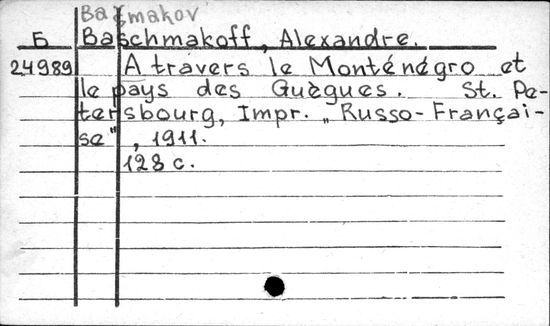 Bašmakov
Б Baschmakoff, Alexandre.
24989 A travers le Monténégro et
le pays des Guègues. St. Pe-
tersbourg, Impr. „Russo-Françai-
se", 1911.
128 c.